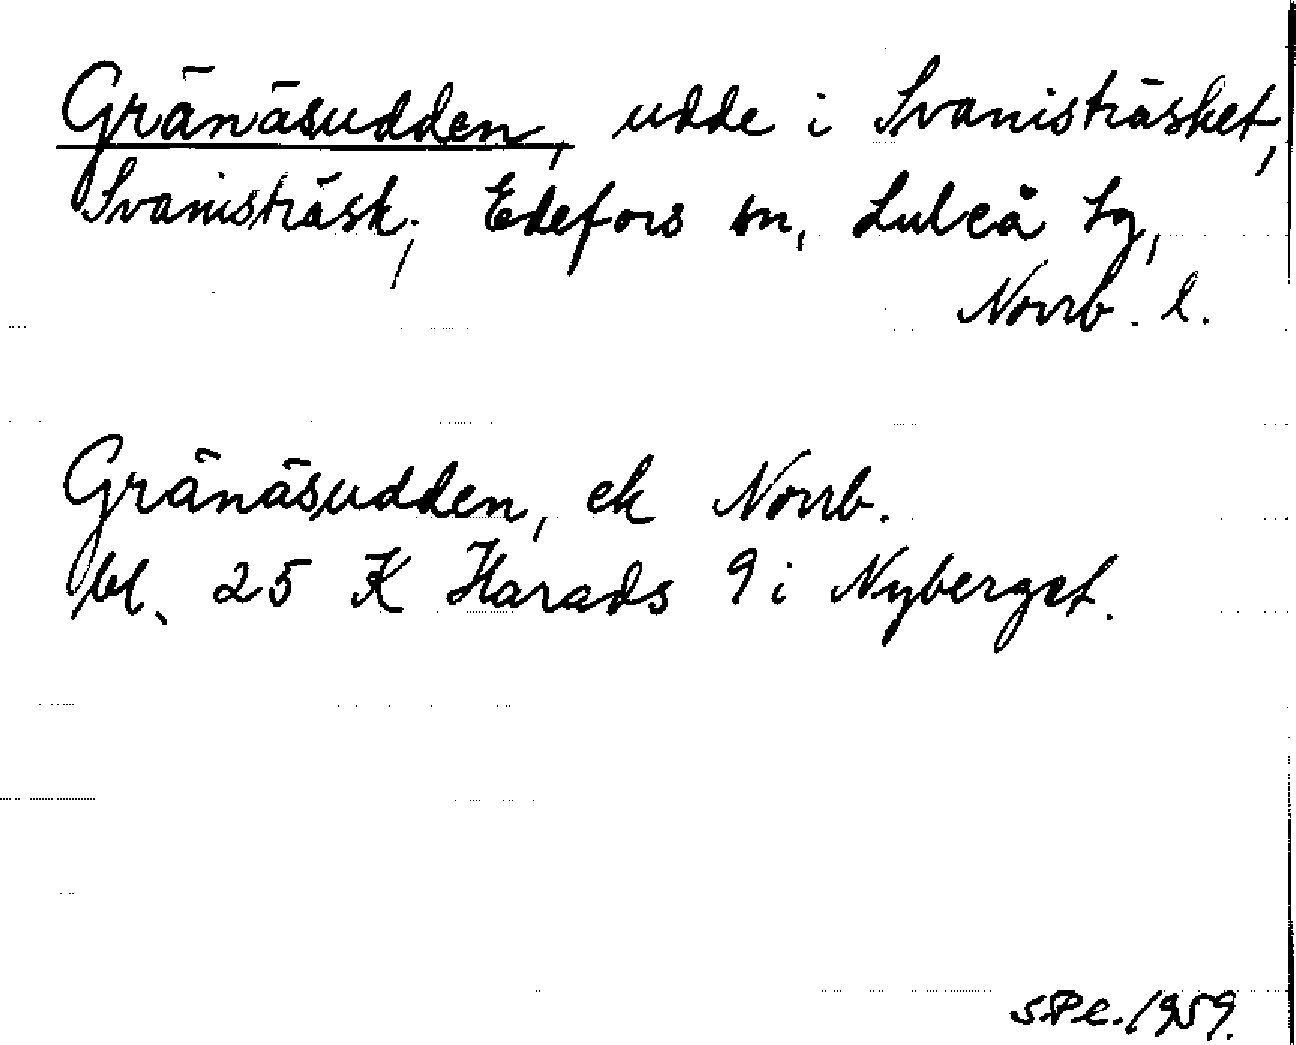 Gränäsudden, udde i Svanisträsket,
Svanisträsk, Edefors sn, Luleå tg,
Norrb. l.
Gränäsudden, ek Norrb.
bl. 25 K Harads 9 i Nyberget.
SPe. 1959.